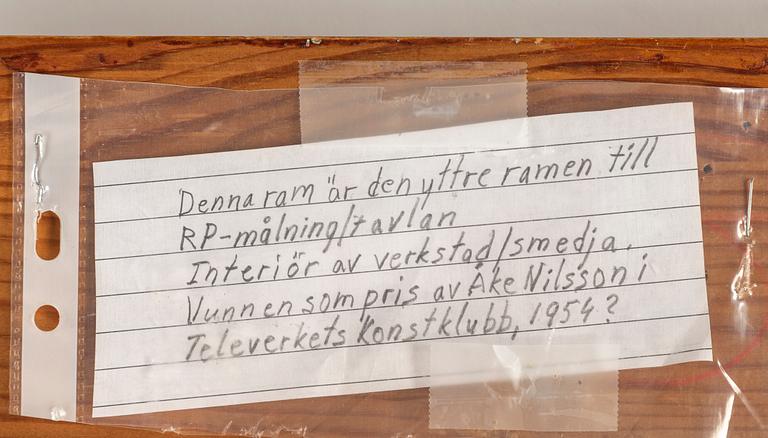 Denna ram är den yttre ramen till
RP-målning/tavlan
Interiör av verkstad/smedja.
Vunnen som pris av Åke Nilsson i
Televerkets Konstklubb, 1954?